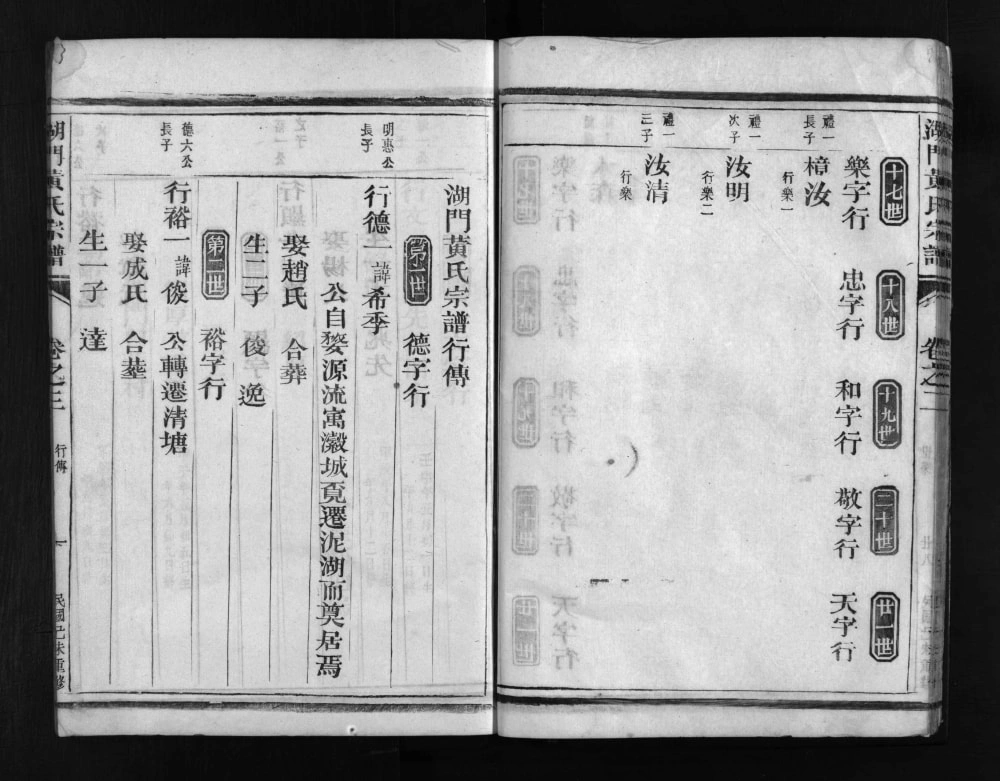 湖門黃氏宗譜
卷之二
十七世
十八世
十九世
二十世
廿一世
樂字行
忠字行
和字行
敬字行
天字行
禮一
長子
樟汝
行樂一
禮一
次子
汝明
行樂二
禮一
三子
汝清
行樂
湖門黃氏宗譜行傳
第一世
德字行
明惠公
長子
行德一諱希季
公自婺源流寓瀫城覓遷泥湖而奠居焉
娶趙氏 合葬
生二子 俊 逸
第二世
裕字行
德六公
長子
行裕一諱俊 公轉遷清塘
娶成氏 合塟
生一子 達
湖門黃氏宗譜
卷之三
行傳
一
民國己未重修